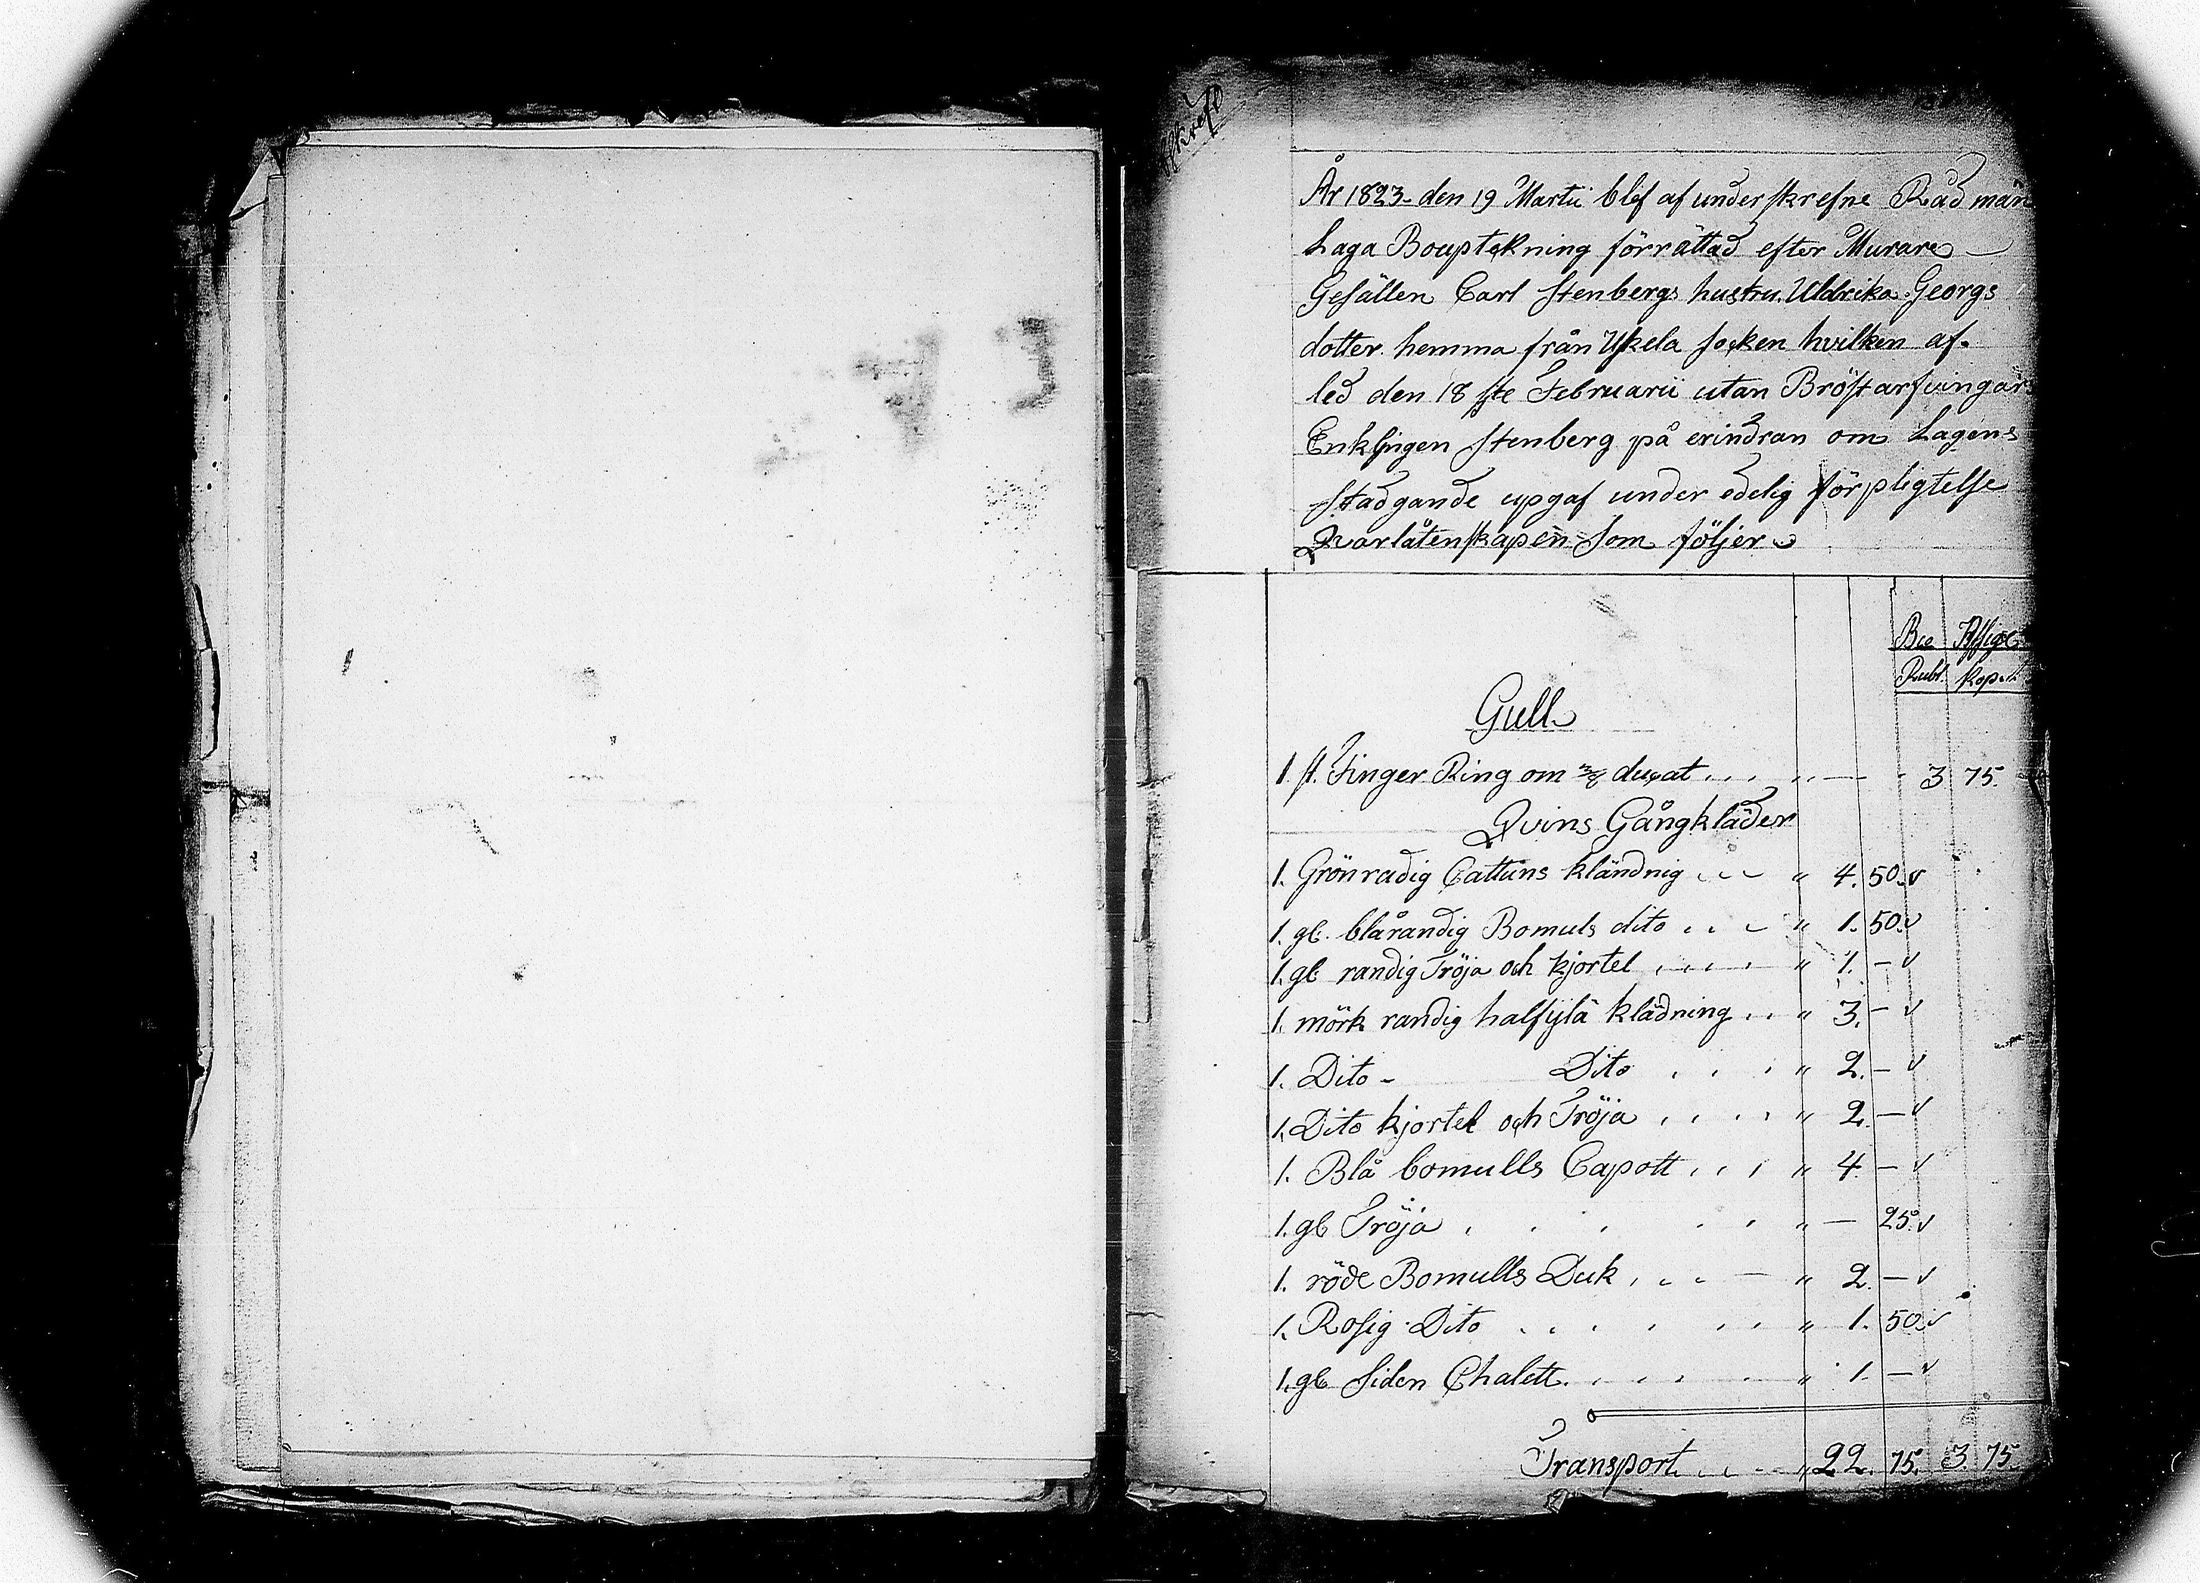 Afskrift
År 1823 den 19 Martii blef af underskrefne Rådmän
Laga Bouptekning förrättad efter Murare
Gesällen Carl Stenbergs hustru Uldrika Georgs
dotter hemma från Ykela socken hvilken af-
led den 18ste Februarii utan Bröstarfvingar
Enklingen Stenberg på erindran om Lagens
Stadgande upgaf under edelig förpligtelse
Qvarlåtenskapen som följer
Bco Assign:
Rubl. kopek
Gull
1. st. Finger Ring om ducat . . . " — 3 75.
Qvins Gångkläder
1. Grönradig Cattuns kländnig . . . " 4. 50.
1. gl. blårandig Bomuls dito . . . " 1. 50.
1. gl randig Tröja och kjortel . . . . " 1. —
1. mörk randig halfylla klädning . . " 3. —
1. Dito - Dito . . . " 2. —
1. Dito kjortel och Tröja . . . . " 2. —
1. Blå bomulls Capott . . . " 4 —
1. gl Tröja . . . . . " — 25.
1. röde Bomulls Duk . . . — " 2. —
1. Rosig Dito . . . . . . . " 1. 50.
1. gl Siden Chalett . . . . . " 1. —
Transport . . . " 22. 75. 3. 75.